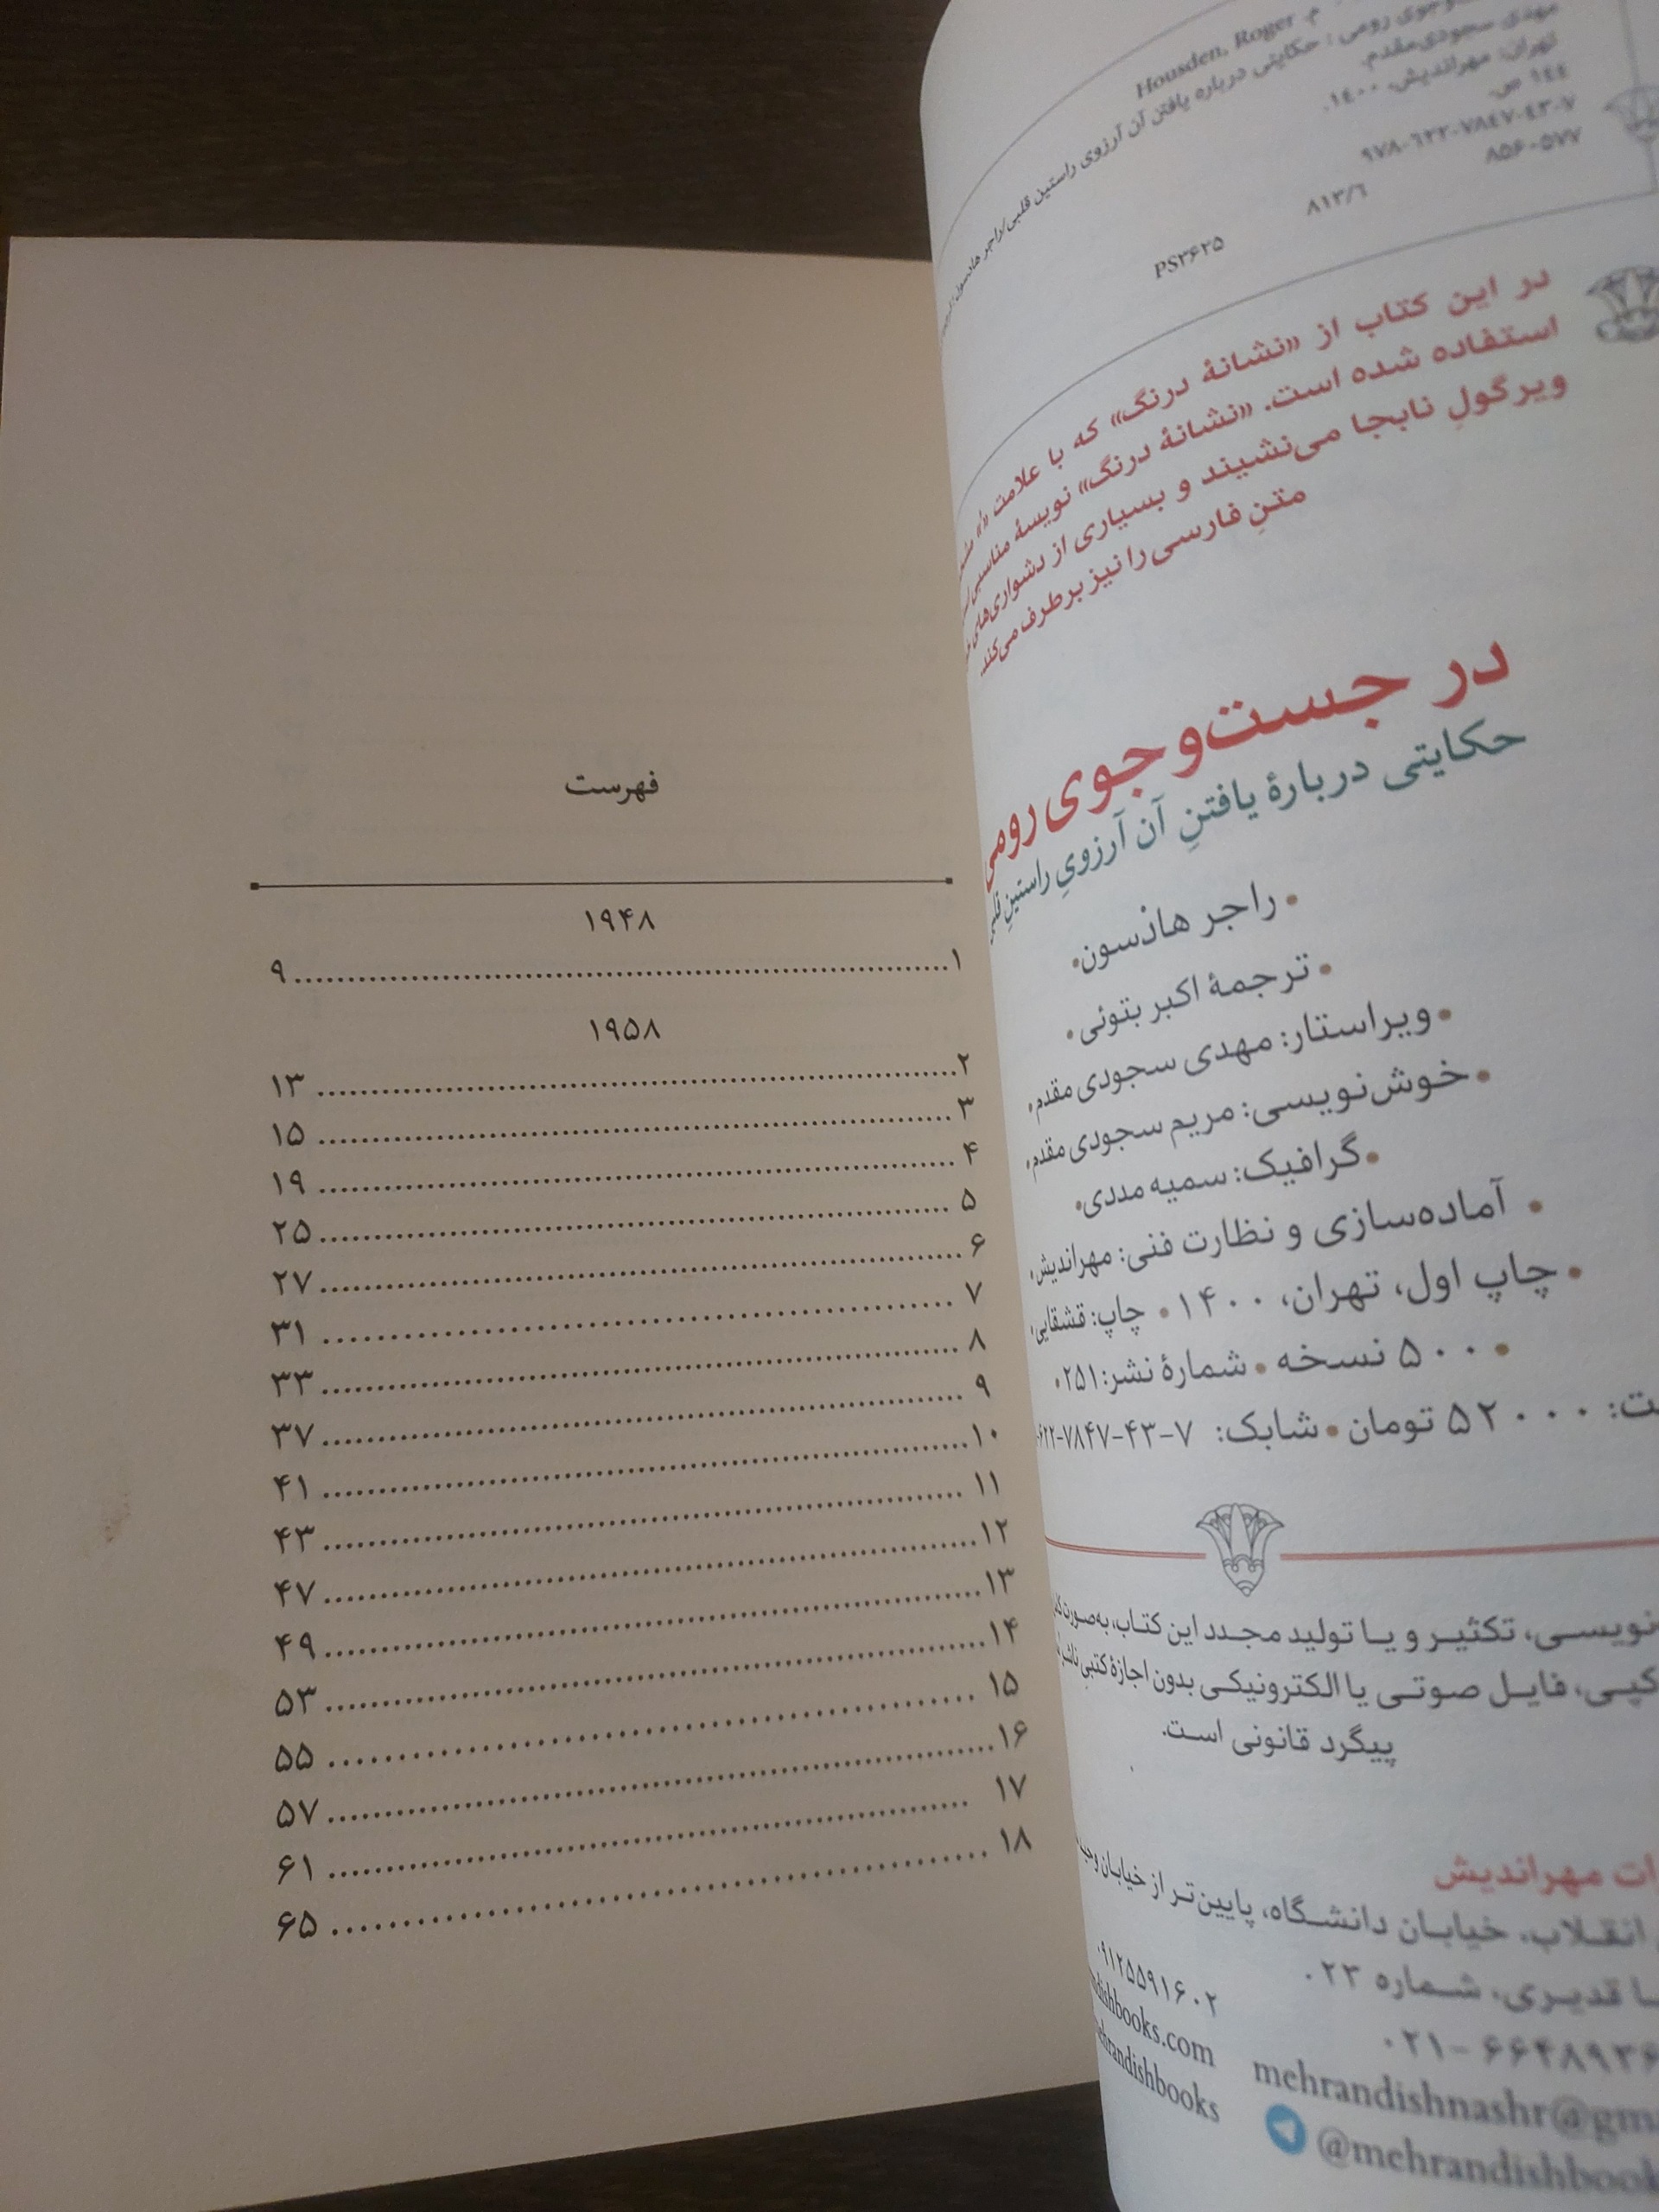 Housden, Roger م.
وجوی رومی : حکایتی درباره یافتن آن آرزوی راستین قلبی/راجر هادسون؛
مهدی سجودی‌مقدم.
تهران: مهراندیش، ١٤٠٠.
١٤٤ ص.
٩٧٨-٦٢٢-٧٨٤٧-٤٣-٧
٨۵۶-۵٧٧
٨١٣/٦
PS٣۶٢۵
در این کتاب از «نشانهٔ درنگ» که با علامت
استفاده شده است. «نشانهٔ درنگ» نویسهٔ مناسبی
ویرگولِ نابجا می‌نشیند و بسیاری از دشواری‌های
متنِ فارسی را نیز برطرف می‌کند.
در جست‌وجوی رومی
حکایتی دربارهٔ یافتنِ آن آرزویِ راستینِ قلبی
• راجر هاذسون •
• ترجمهٔ اکبر بتوئی •
• ویراستار: مهدی سجودی مقدم •
• خوش‌نویسی: مریم سجودی مقدم •
• گرافیک: سمیه مددی •
• آماده‌سازی و نظارت فنی: مهراندیش •
• چاپ اول، تهران، ۱۴۰۰ • چاپ: قشقایی •
• ۵۰۰ نسخه • شمارهٔ نشر: ۲۵۱ •
ت: ۵۲۰۰۰ تومان • شابک: ۶۲۲-۷۸۴۷-۴۳-۷
نویسی، تکثیر و یا تولید مجدد این کتاب، به‌صورت
کپی، فایل صوتی یا الکترونیکی بدون اجازهٔ کتبی ناشر
پیگرد قانونی است.
ات مهراندیش
انقلاب، خیابان دانشگاه، پایین‌تر از خیابان
قدیری، شماره ۲۳
۰۲۱-۶۶۴۸۹۳۶
۰۹۱۲۵۵۹۱۶۰۲
mehrandishnashr@gm
dishbooks.com
@mehrandishbook
ehrandishbooks
فهرست
۱۹۴۸
۱ ........ ۹
۱۹۵۸
۲ ........ ۱۳
۳ ........ ۱۵
۴ ........ ۱۹
۵ ........ ۲۵
۶ ........ ۲۷
۷ ........ ۳۱
۸ ........ ۳۳
۹ ........ ۳۷
۱۰ ........ ۴۱
۱۱ ........ ۴۳
۱۲ ........ ۴۷
۱۳ ........ ۴۹
۱۴ ........ ۵۳
۱۵ ........ ۵۵
۱۶ ........ ۵۷
۱۷ ........ ۶۱
۱۸ ........ ۶۵